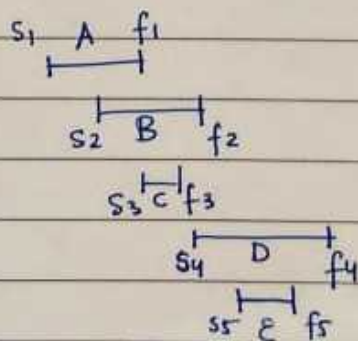 S1 A f1
S2 B f2
S3 C f3
S4 D f4
S5 E f5